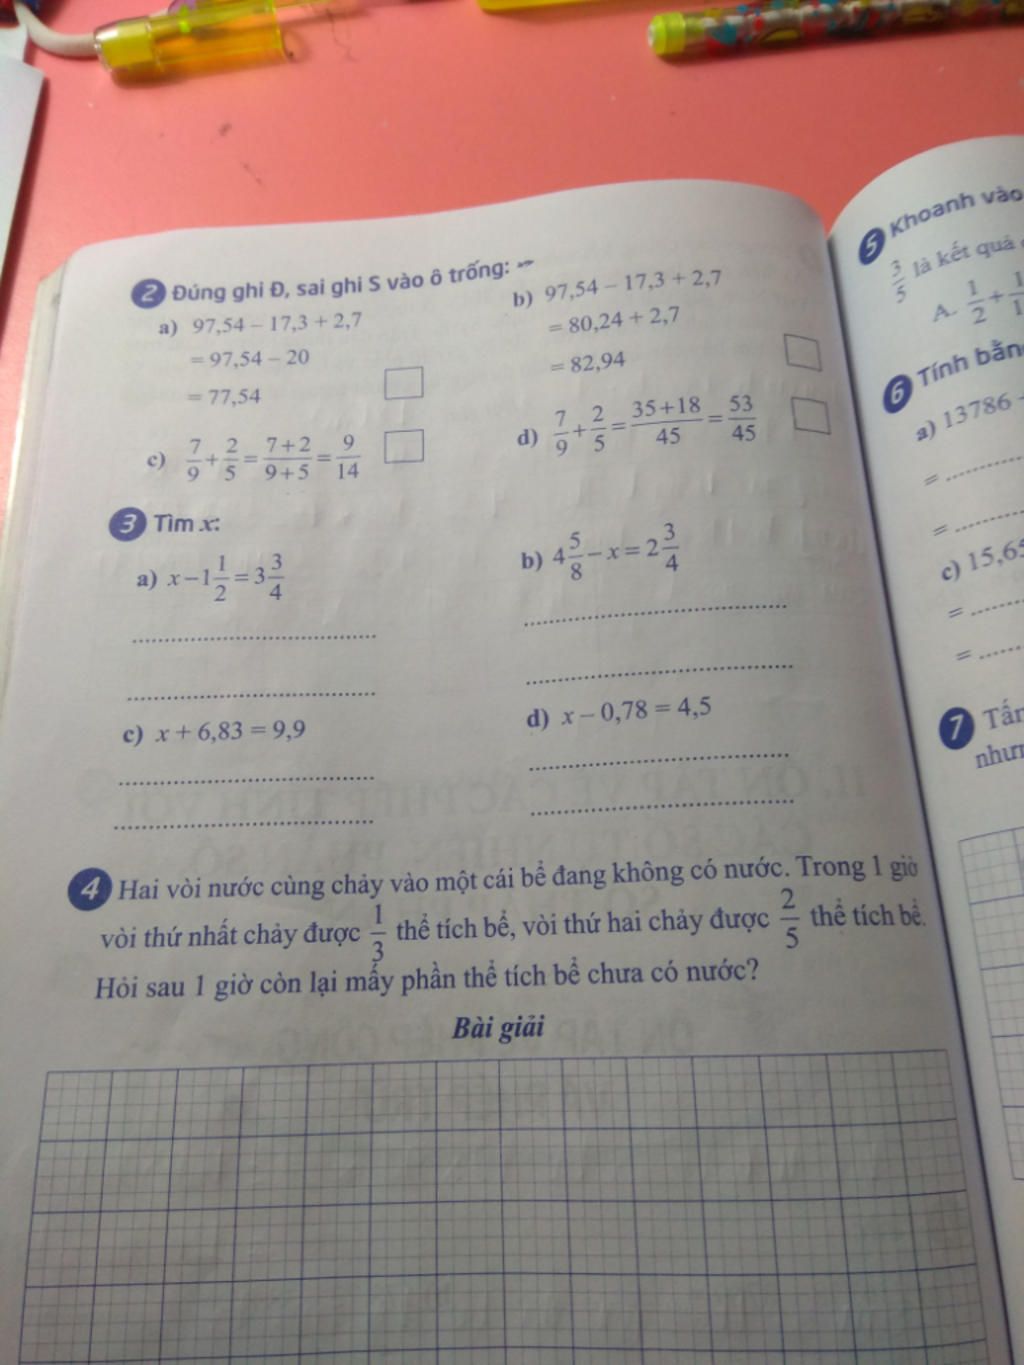 2 Đúng ghi Đ, sai ghi S vào ô trống:
a) 97,54 – 17,3 + 2,7
= 97,54 – 20
= 77,54
b) 97,54 – 17,3 + 2,7
= 80,24 + 2,7
= 82,94
c) 7/9 + 2/5 = (7+2)/(9+5) = 9/14
d) 7/9 + 2/5 = (35+18)/45 = 53/45
3 Tìm x:
a) x – 1 1/2 = 3 3/4
b) 4 5/8 – x = 2 3/4
c) x + 6,83 = 9,9
d) x – 0,78 = 4,5
4 Hai vòi nước cùng chảy vào một cái bể đang không có nước. Trong 1 giờ
vòi thứ nhất chảy được 1/3 thể tích bể, vòi thứ hai chảy được 2/5 thể tích bể.
Hỏi sau 1 giờ còn lại mấy phần thể tích bể chưa có nước?
Bài giải
5 Khoanh vào
3/5 là kết quả
A. 1/2 +
6 Tính bằn
a) 13786 -
=
=
c) 15,65
=
=
7 Tấn
như